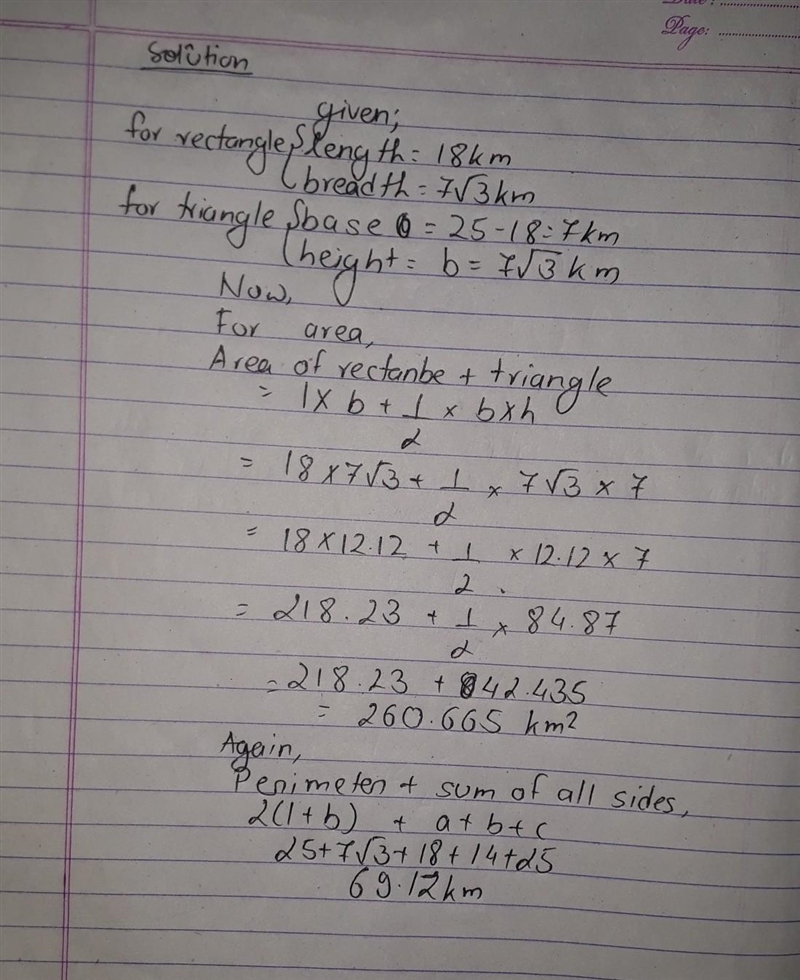 Date:
Page:
Solution
given;
for rectangle { length = 18km
breadth = 7√3 km
for triangle { base = 25-18 = 7km
height = b = 7√3 km
Now,
For area,
Area of rectanbe + triangle
= l × b + 1/2 × b×h
= 18 × 7√3 + 1/2 × 7√3 × 7
= 18 × 12.12 + 1/2 × 12.12 × 7
= 218.23 + 1/2 × 84.87
= 218.23 + 42.435
= 260.665 km²
Again,
Perimeter + sum of all sides,
2(l+b) + a+b+c
25+7√3+18+14+25
69.12km